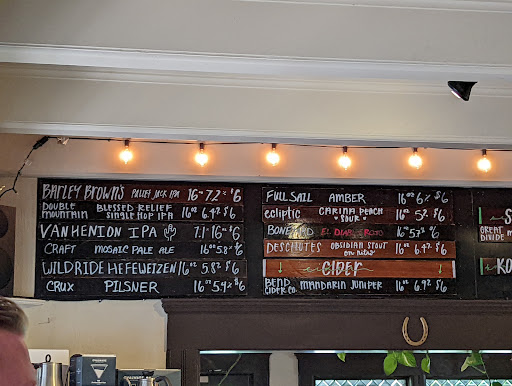 BARLEY BROWN'S PALLET JACK IPA 16oz 7.2% $6
DOUBLE MOUNTAIN BLESSED RELIEF SINGLE HOP IPA 16oz 6.4% $6
VAN HENION IPA 7.1% 16oz $6
CRAFT MOSAIC PALE ALE 16oz 5.8% $6
WILDRIDE HEFEWEIZEN 16oz 5.8% $6
CRUX PILSNER 16oz 5.4% $6
FULL SAIL AMBER 16oz 6% $6
ecliptic CARINA PEACH SOUR 16oz 5% $6
BONEYARD EL DIABLO ROJO 16oz 5.5% $6
DESCHUTES OBSIDIAN STOUT on nitro 16oz 6.4% $6
CIDER
BEND CIDER CO. MANDARIN JUNIPER 16oz 6.9% $6
GREAT DIVIDE
KO